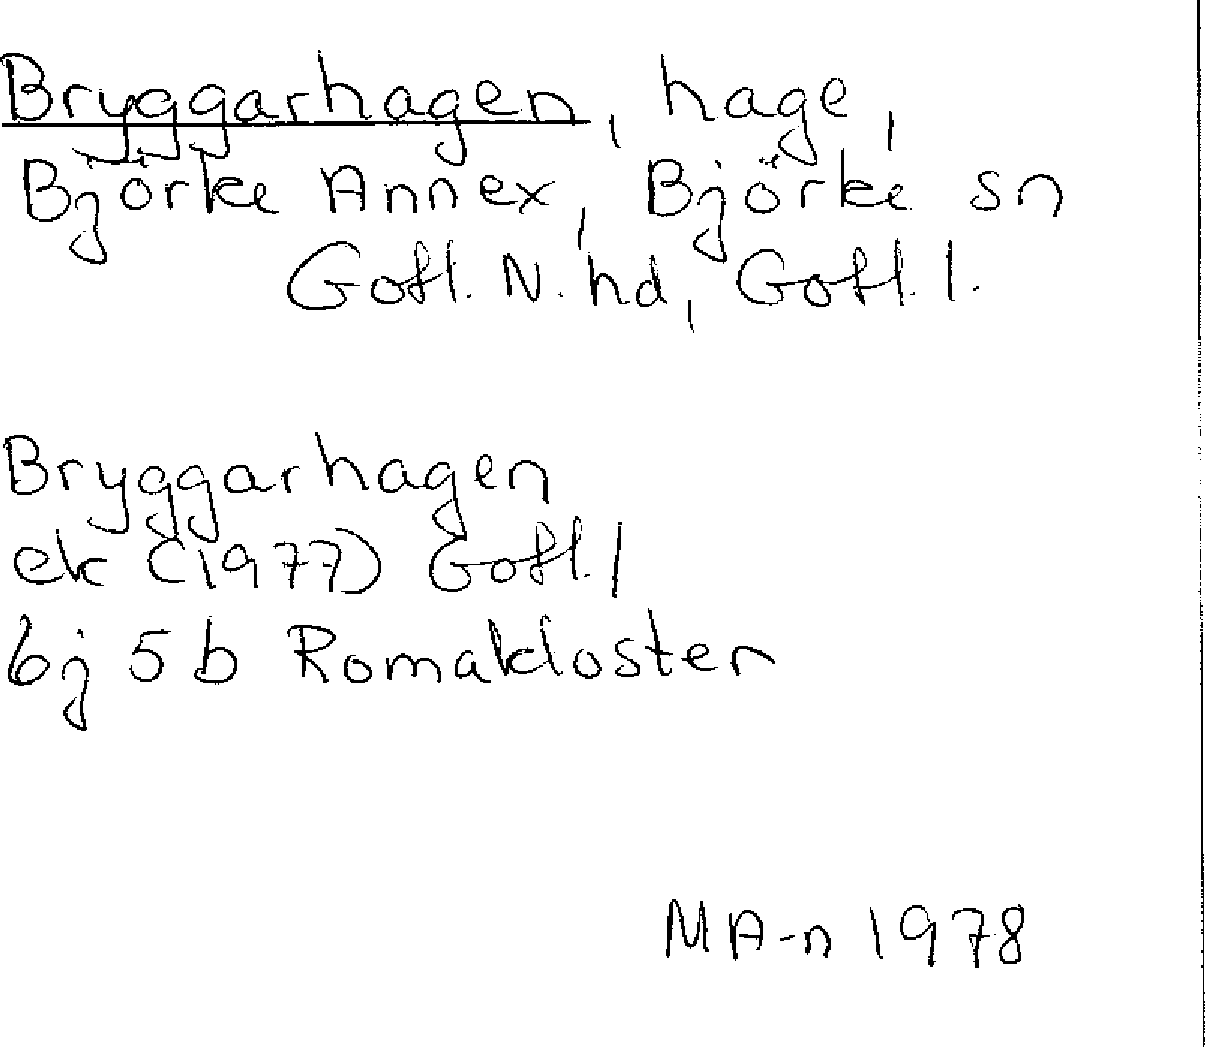 Bryggarhagen, hage,
Björke Annex, Björke sn
Gotl. N. hd, Gotl. l.
Bryggarhagen
ek (1977) Gotl. l
6j 5b Romakloster
MA-n 1978